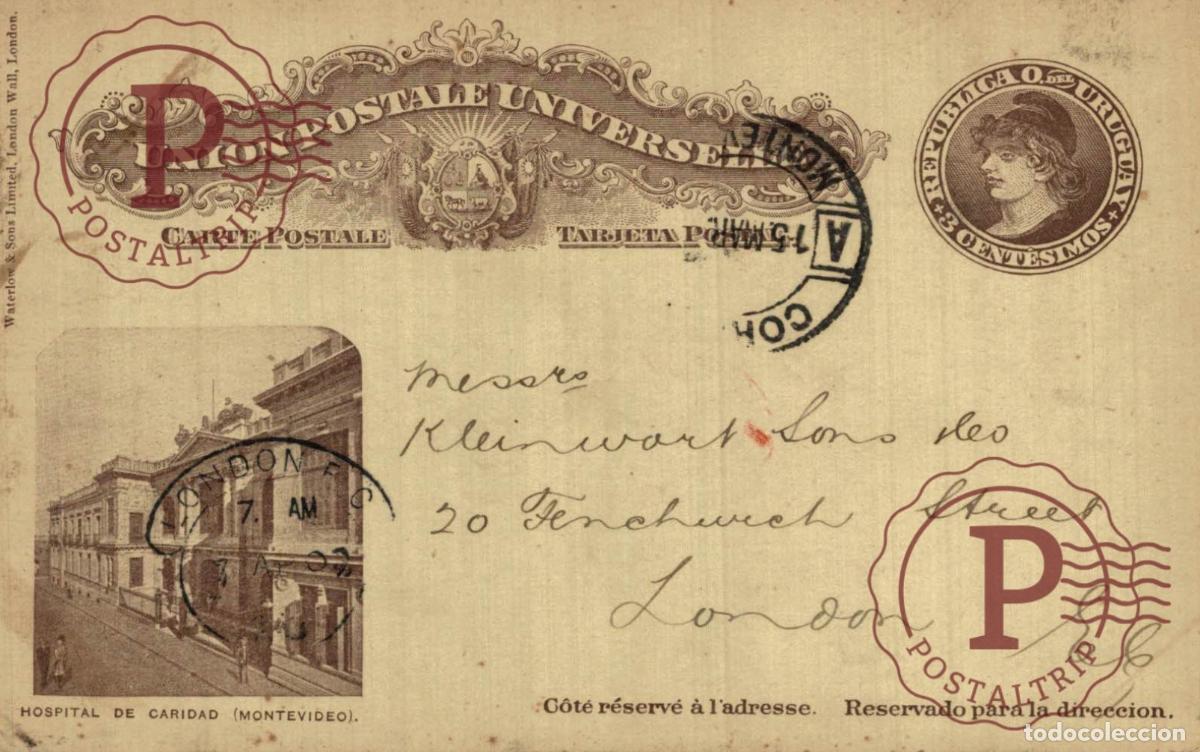 Waterlow & Sons Limited, London Wall, London.
UNION POSTALE UNIVERSELLE
CARTE POSTALE TARJETA POSTAL
REPUBLICA O. DEL URUGUAY
3 CENTESIMOS
P
POSTALTRIP
MONTEV
A 15 MAR
COR
Messrs
Kleinwort Sons & Co
20 Fenchurch Street
London E C
LONDON E C
7. AM
AP 03
HOSPITAL DE CARIDAD (MONTEVIDEO).
Côté réservé à l'adresse. Reservado para la direccion.
P
POSTALTRIP
todocoleccion